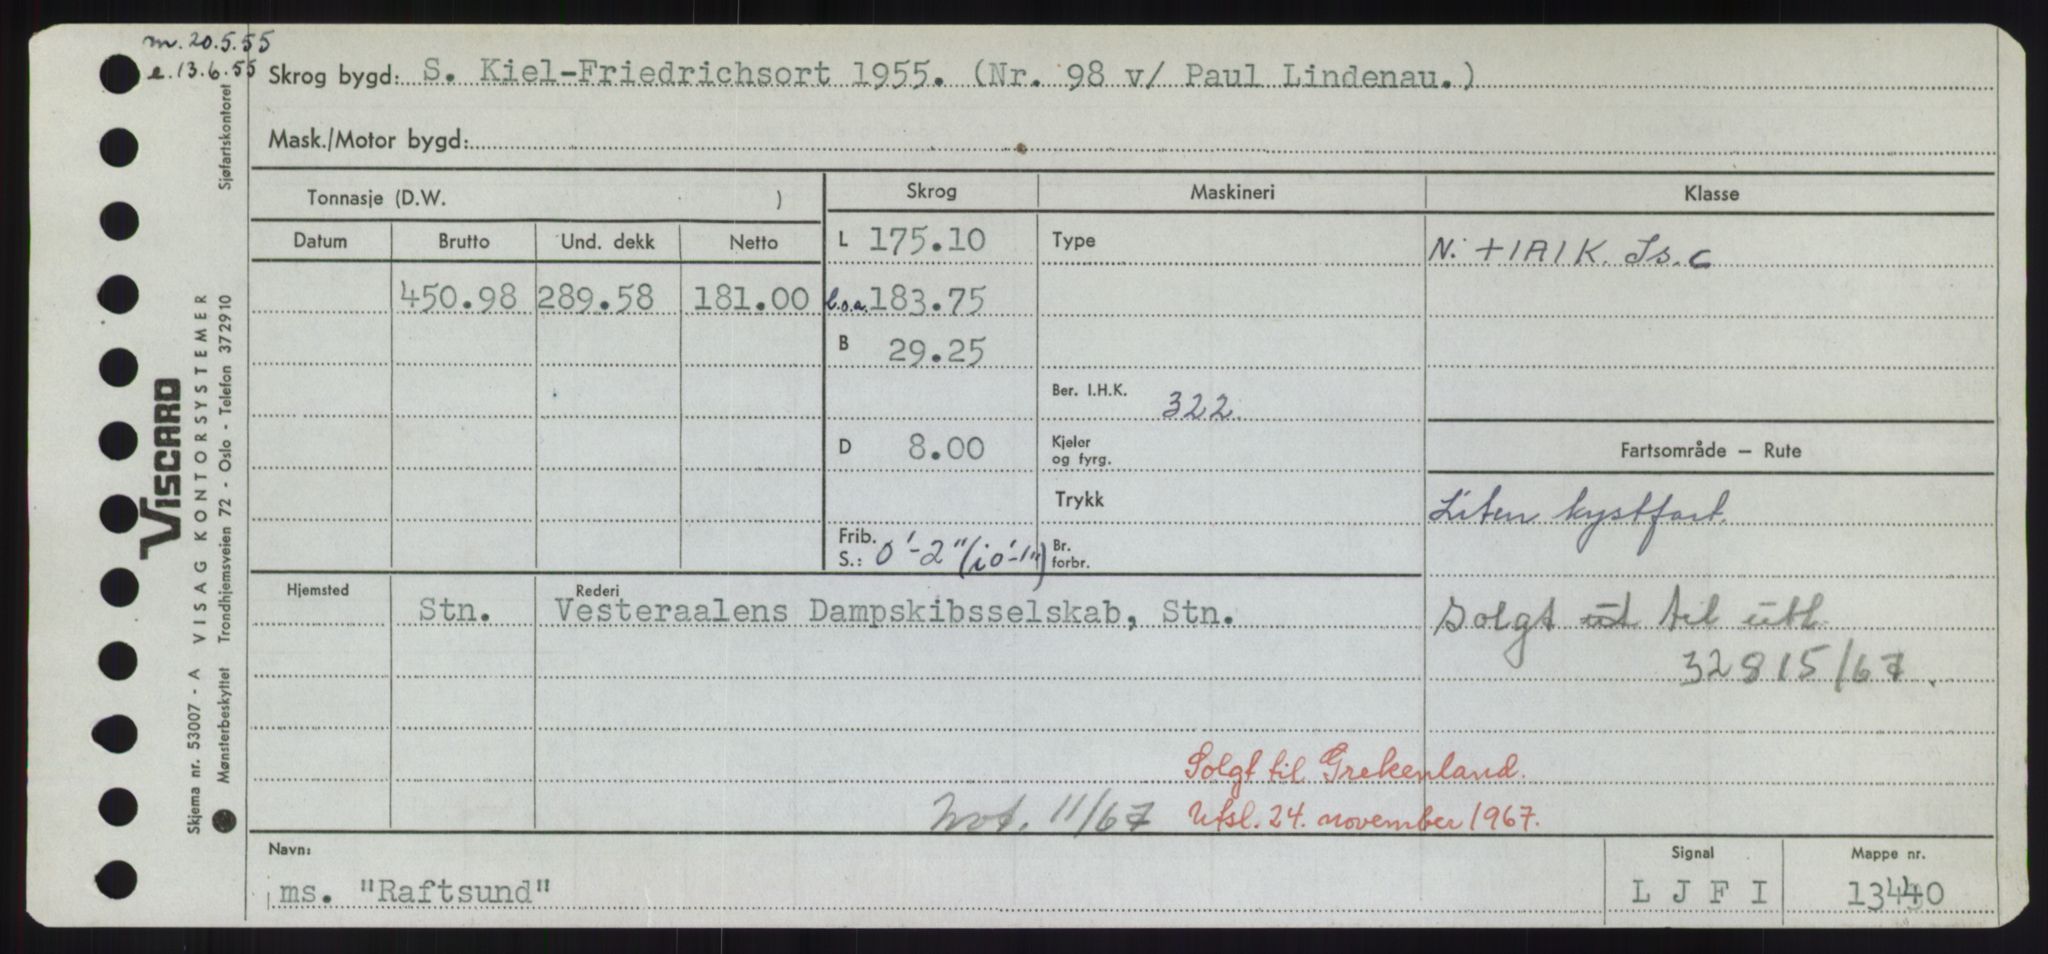 m. 20.5.55
e. 13.6.55
Skrog bygd: S. Kiel-Friedrichsort 1955. (Nr. 98 v/ Paul Lindenau.)
Mask./Motor bygd:
Tonnasje (D.W. )
Skrog
Maskineri
Klasse
Datum
Brutto
Und. dekk
Netto
L 175.10
Type
N. +1A1 K. Is. C
450.98 289.58 181.00
l.o.a. 183.75
B 29.25
Ber. I.H.K. 322
D 8.00
Kjeler
og fyrg.
Fartsområde – Rute
Trykk
Liten kystfart.
Frib.
S.: 0'-2" (i 0'-1")
Br.
forbr.
Hjemsted
Rederi
Stn. Vesteraalens Dampskibsselskab, Stn.
Solgt ut til utl.
32815/67.
Solgt til Grekenland.
Not. 11/67 Utsl. 24. november 1967.
Navn:
ms. "Raftsund"
Signal
L J F I
Mappe nr.
13440
Sjøfartskontoret
VISCARD
VISAG KONTORSYSTEMER
Trondhjemsveien 72 - Oslo - Telefon 372910
Skjema nr. 53007 - A
Mønsterbeskyttet